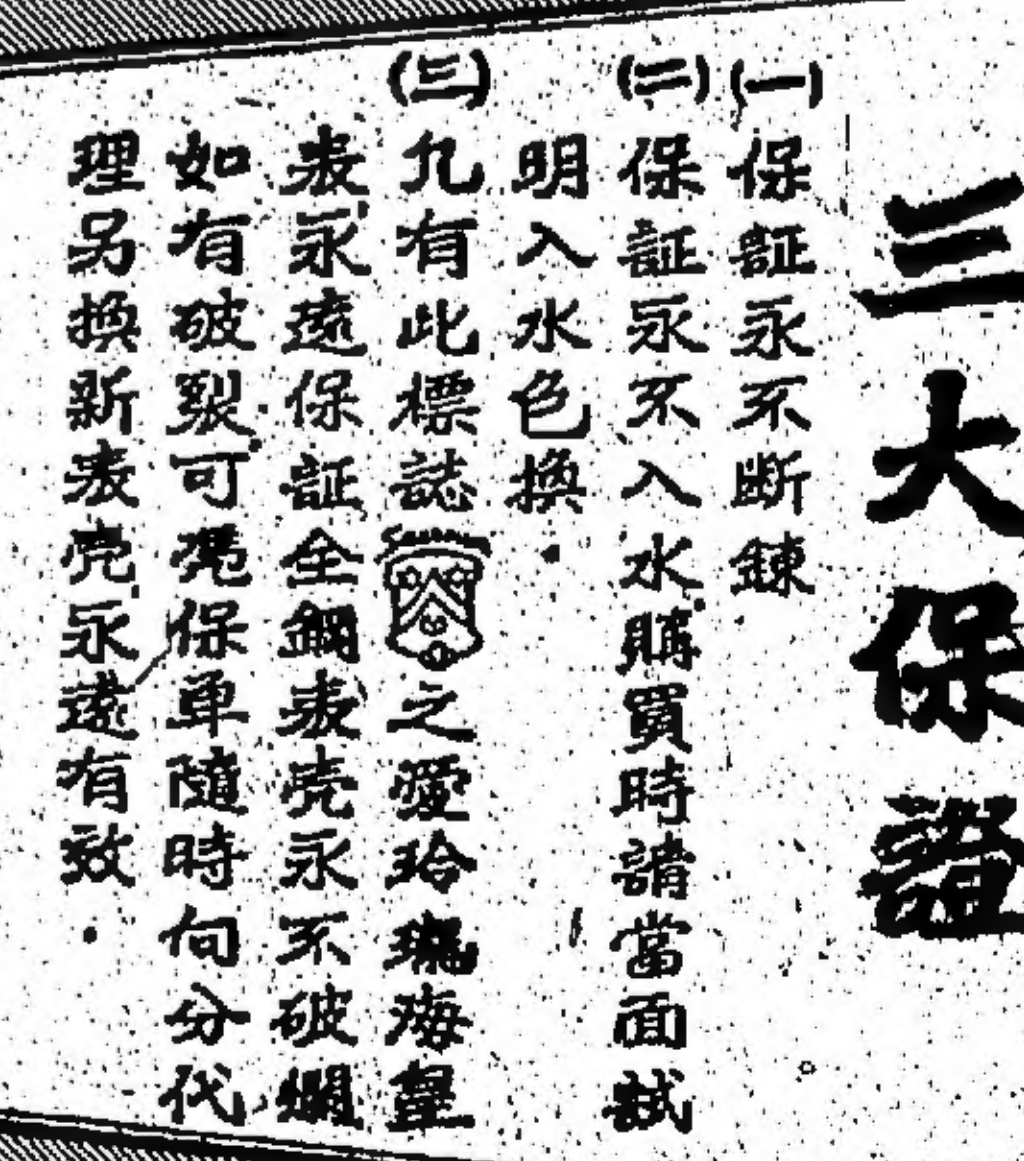 三大保證
(一)保証永不斷鍊
(二)保証永不入水購買時請當面試
明入水色換
(三)凡有此標誌之愛玲瓏海皇
表永遠保証全鋼表壳永不破爛
如有破裂可凴保单隨時向分代
理另換新表壳永遠有效.